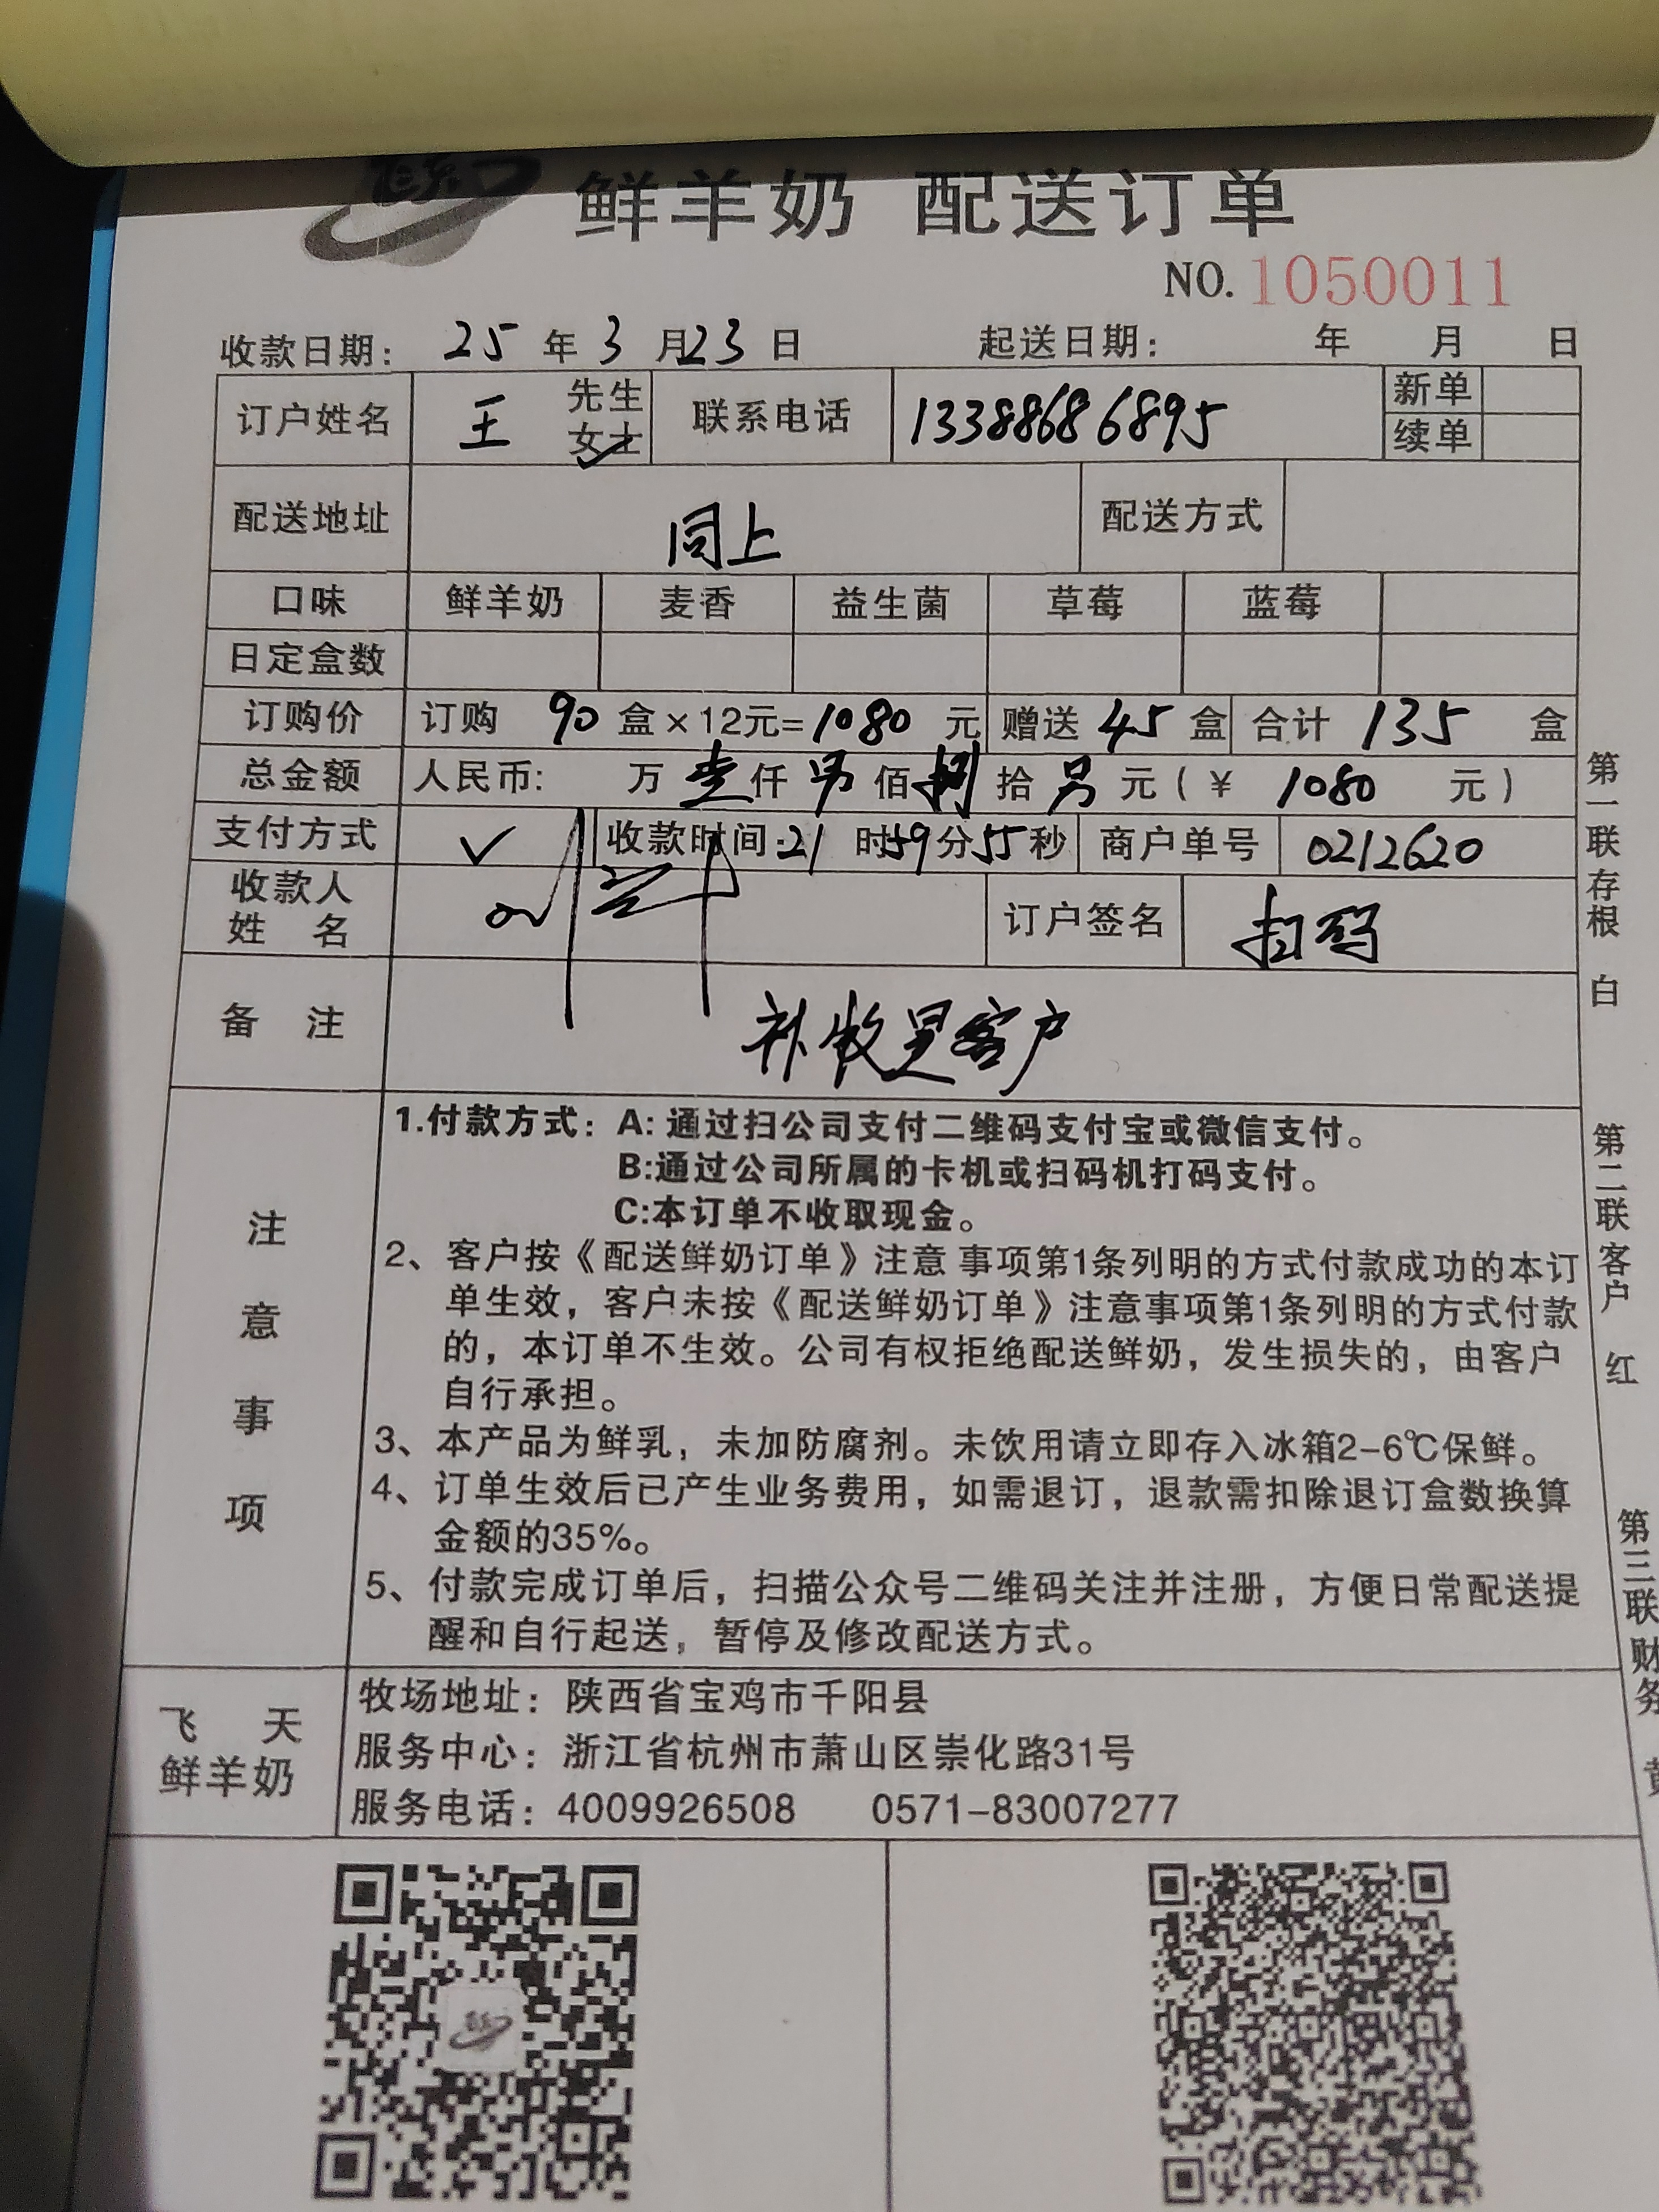 鲜羊奶 配送订单
NO.1050011
收款日期: 25 年 3 月 23 日 起送日期: 年 月 日
订户姓名 王 先生 女士 联系电话 13388686895 新单 续单
配送地址 同上 配送方式
口味 鲜羊奶 麦香 益生菌 草莓 蓝莓
日定盒数
订购价 订购 90 盒×12元=1080 元 赠送 45 盒 合计 135 盒
总金额 人民币: 万 壹 仟 另 佰 捌 拾 另 元(¥ 1080 元)
支付方式 ✓ 收款时间:21 时59分55秒 商户单号 0212620
收款人
姓 名 订户签名 扫码
备 注 补收是客户
注意事项
1.付款方式: A:通过扫公司支付二维码支付宝或微信支付。
B:通过公司所属的卡机或扫码机打码支付。
C:本订单不收取现金。
2、客户按《配送鲜奶订单》注意 事项第1条列明的方式付款成功的本订
单生效,客户未按《配送鲜奶订单》注意事项第1条列明的方式付款
的,本订单不生效。公司有权拒绝配送鲜奶,发生损失的,由客户
自行承担。
3、本产品为鲜乳,未加防腐剂。未饮用请立即存入冰箱2-6℃保鲜。
4、订单生效后已产生业务费用,如需退订,退款需扣除退订盒数换算
金额的35%。
5、付款完成订单后,扫描公众号二维码关注并注册,方便日常配送提
醒和自行起送,暂停及修改配送方式。
飞 天
鲜羊奶
牧场地址:陕西省宝鸡市千阳县
服务中心:浙江省杭州市萧山区崇化路31号
服务电话:4009926508 0571-83007277
第一联存根 白
第二联客户 红
第三联财务 黄